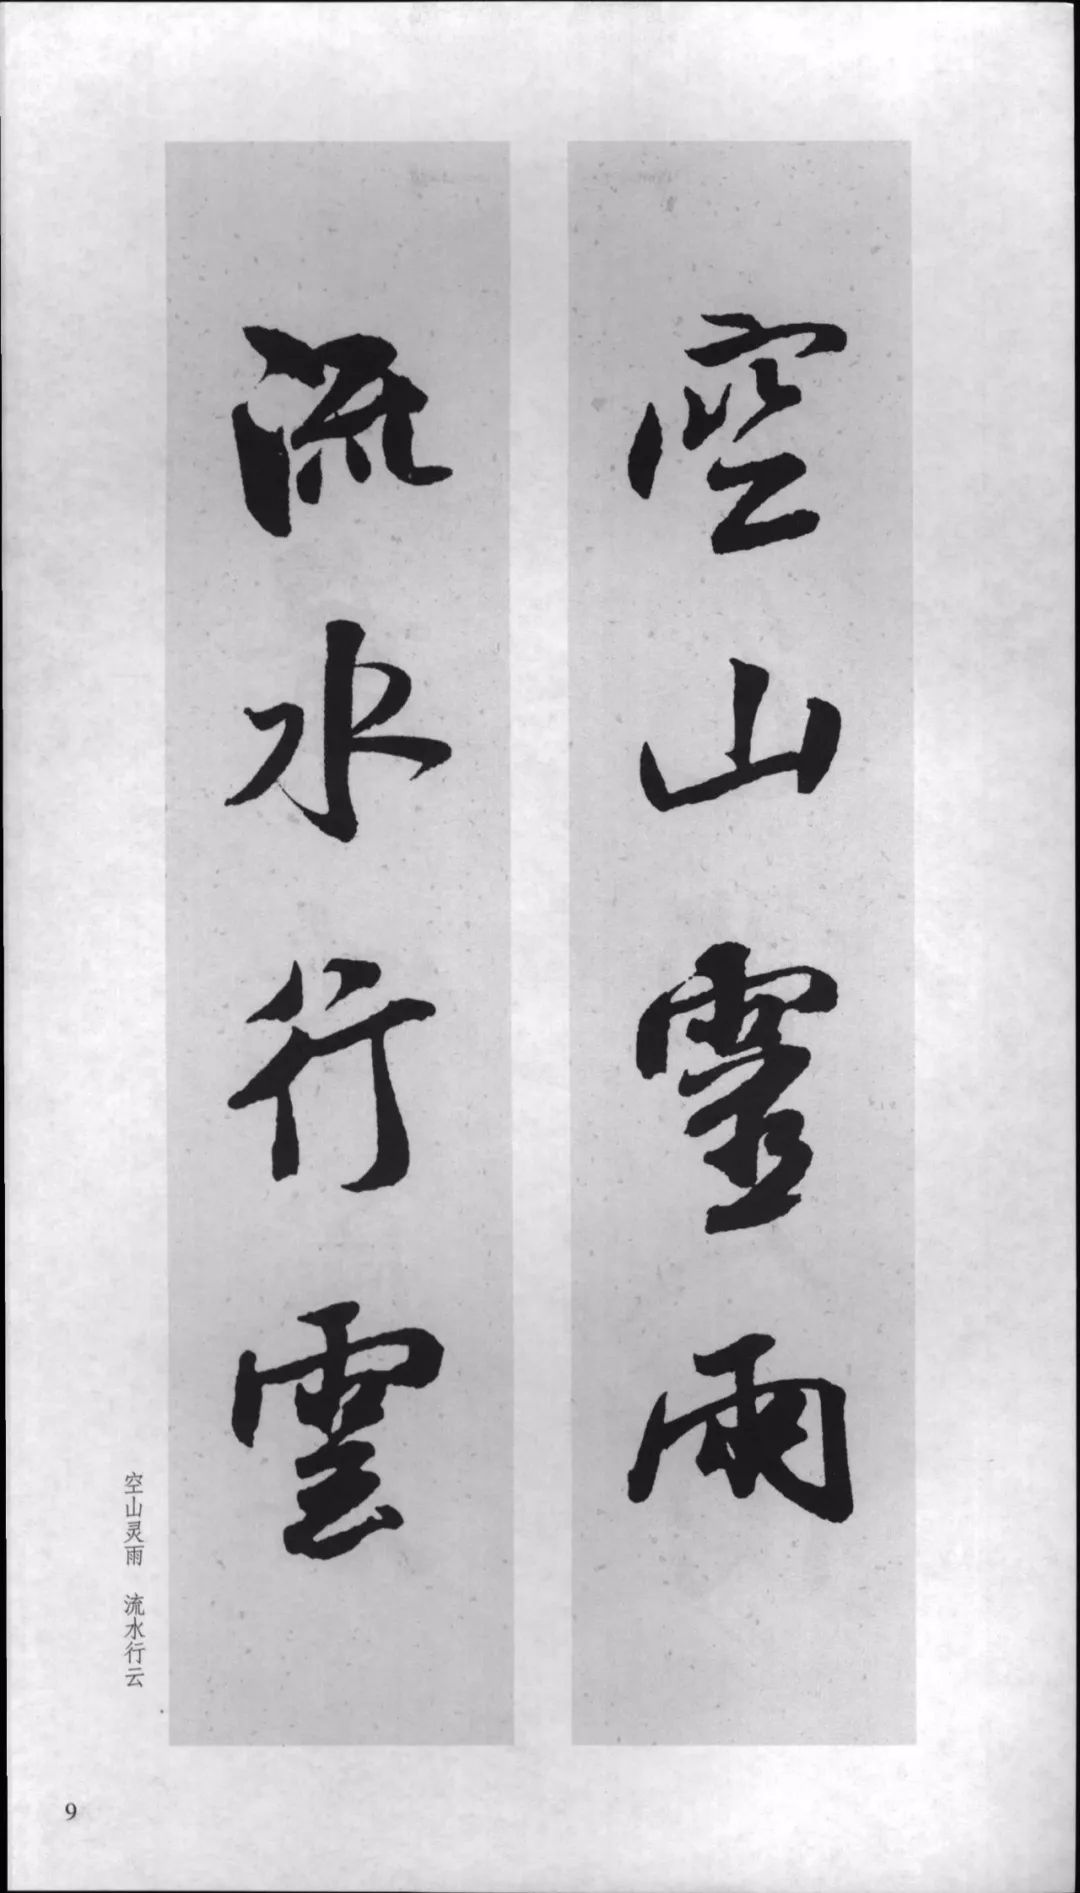 空山靈雨
流水行雲
空山灵雨 流水行云
9